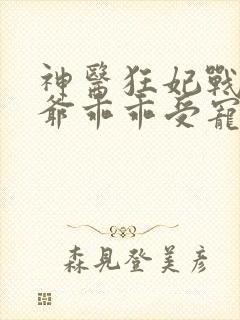 神醫狂妃戰
爺乖乖受寵
森見登美彥